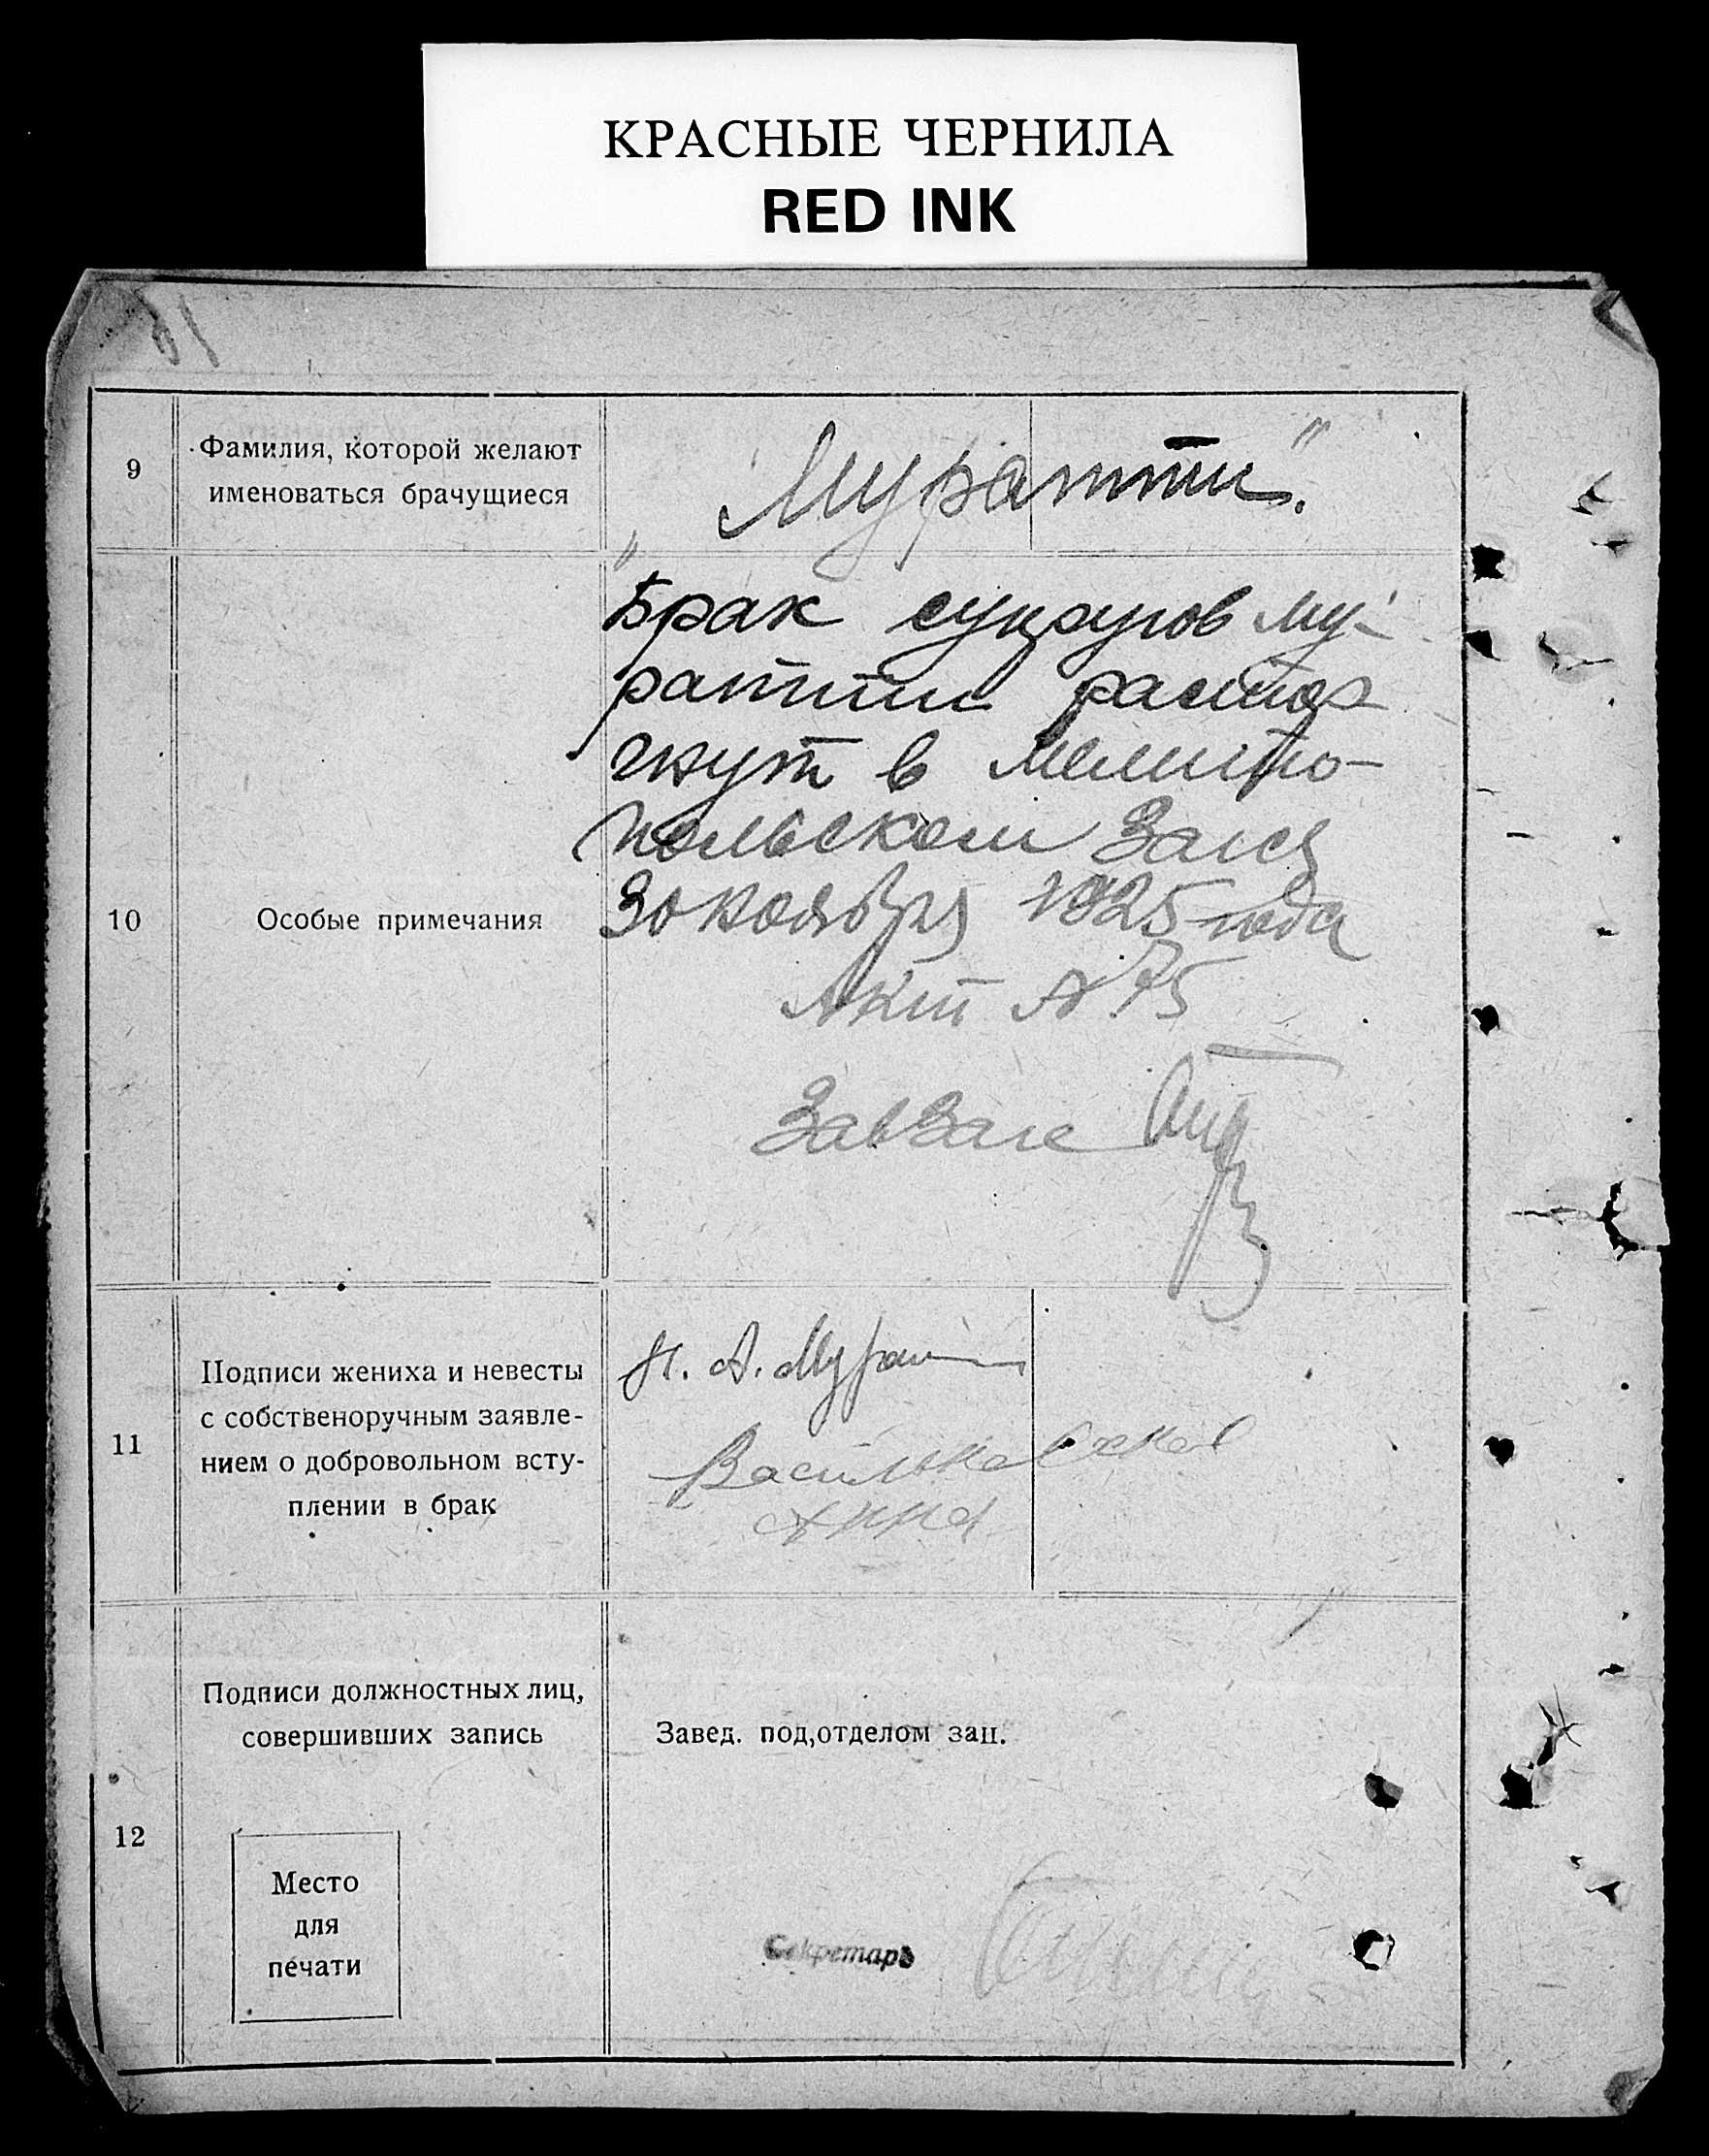 КРАСНЫЕ ЧЕРНИЛА
RED INK
9
Фамилия, которой желают
именоваться брачущиеся
„Муратти".
10
Особые примечания
Брак супругов Му-
ратти расторг
нут в Мелито-
польском Загсе
30 ноября 1925 года
Акт № 75
ЗавЗагс
11
Подписи жениха и невесты
с собственоручным заявле-
нием о добровольном всту-
плении в брак
Н. А. Муратти
Васильковская
Анна
12
Подписи должностных лиц,
совершивших запись
Завед. под,отделом зап.
Место
для
печати
Секретарь